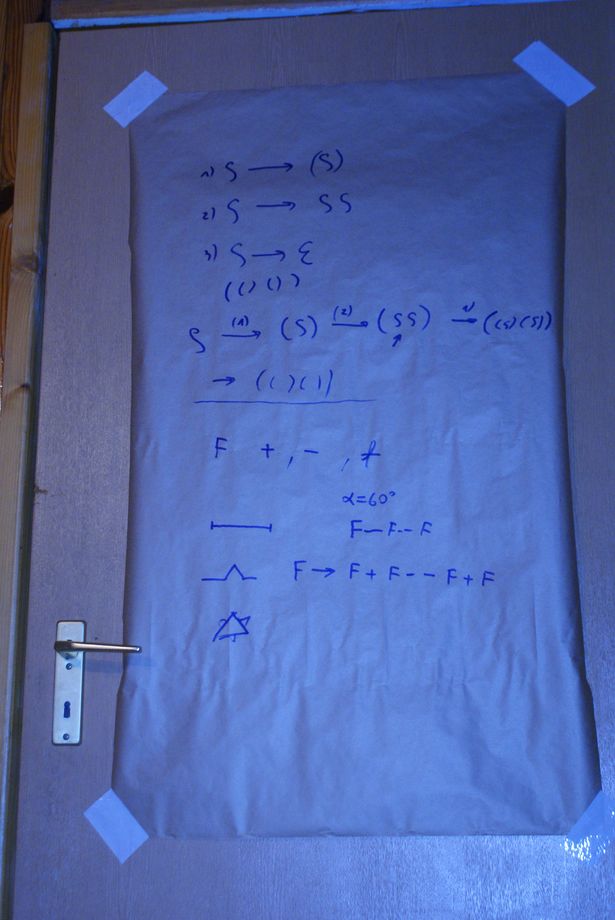 1) S → (S)
2) S → SS
3) S → ε
(()())
S →(1) (S) →(2) (SS) →1) ((S)(S))
→ (()())
F +, -, f
α=60°
F--F--F
F → F+F--F+F